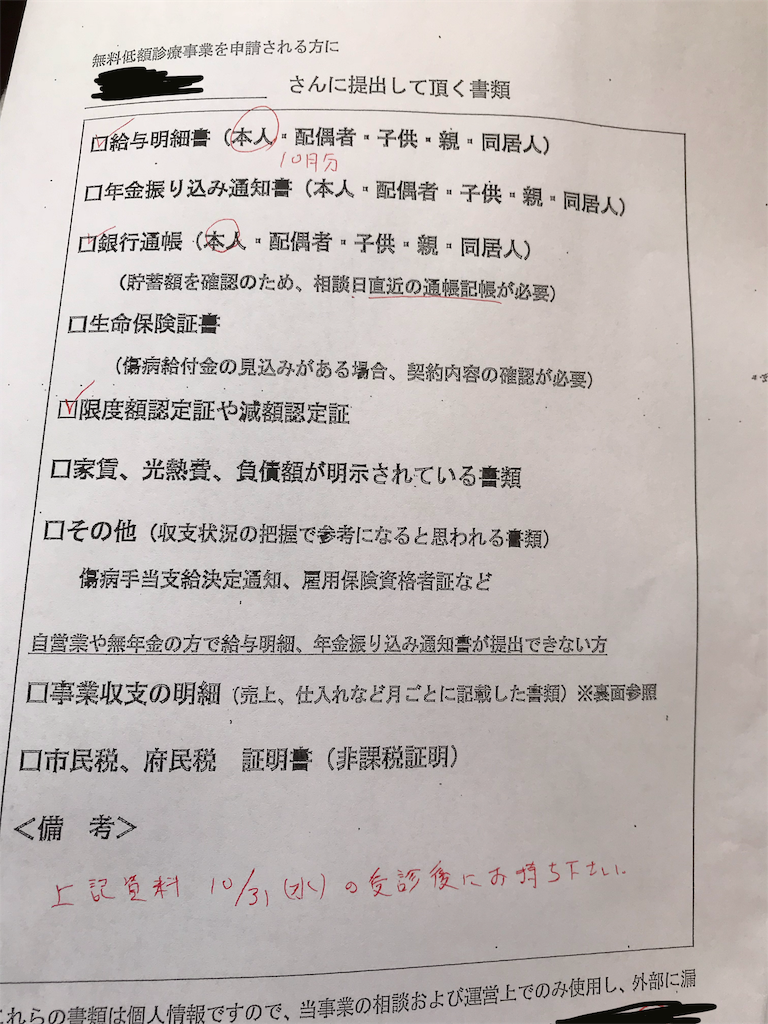 無料低額診療事業を申請される方に
さんに提出して頂く書類
☑給与明細書（本人・配偶者・子供・親・同居人）
10月分
□年金振り込み通知書（本人・配偶者・子供・親・同居人）
☑銀行通帳（本人・配偶者・子供・親・同居人）
（貯蓄額を確認のため、相談日直近の通帳記帳が必要）
□生命保険証書
（傷病給付金の見込みがある場合、契約内容の確認が必要）
☑限度額認定証や減額認定証
□家賃、光熱費、負債額が明示されている書類
□その他（収支状況の把握で参考になると思われる書類）
傷病手当支給決定通知、雇用保険資格者証など
自営業や無年金の方で給与明細、年金振り込み通知書が提出できない方
□事業収支の明細（売上、仕入れなど月ごとに記載した書類）※裏面参照
□市民税、府民税　証明書（非課税証明）
＜備　考＞
上記資料 10/31（水）の受診後にお持ち下さい.
これらの書類は個人情報ですので、当事業の相談および運営上でのみ使用し、外部に漏